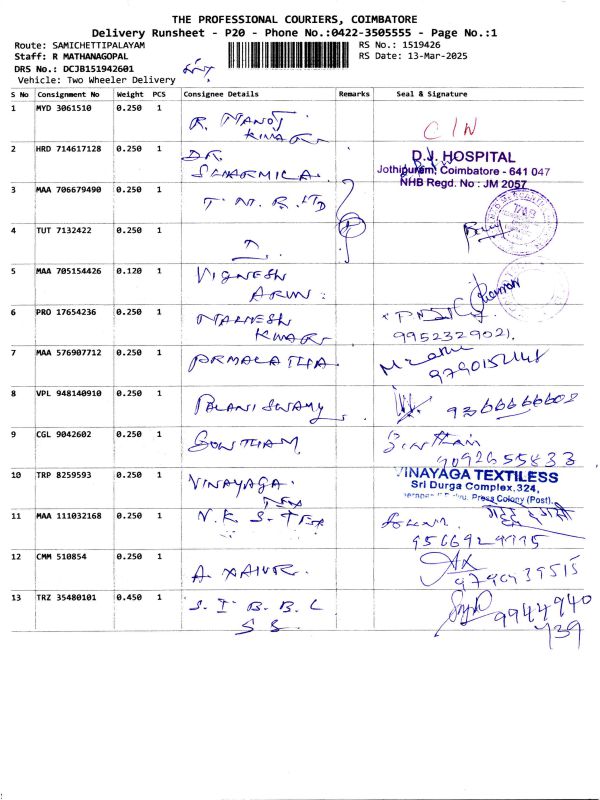 THE PROFESSIONAL COURIERS, COIMBATORE
Delivery Runsheet - P20 - Phone No.:0422-3505555 - Page No.:1
Route: SAMICHETTIPALAYAM
RS No.: 1519426
Staff: R MATHANAGOPAL
RS Date: 13-Mar-2025
DRS No.: DCJB151942601
Vehicle: Two Wheeler Delivery
S No Consignment No Weight PCS Consignee Details Remarks Seal & Signature
1 MYD 3061510 0.250 1 R. MANOJ
KUMAR
C/N
2 HRD 714617128 0.250 1 DR.
SHARMILA.
D.J. HOSPITAL
Jothipuram, Coimbatore - 641 047
NHB Regd. No : JM 2057
3 MAA 706679490 0.250 1 T. N. R. LTD
4 TUT 7132422 0.250 1
5 MAA 705154426 0.120 1 VIGNESH
ARUN
6 PRO 17654236 0.250 1 MAHESH
KUMAR
9952329021
7 MAA 576907712 0.250 1 PRMALATHA
8 VPL 948140910 0.250 1 PALANISWAMY
9366666602
9 CGL 9042602 0.250 1 GOWTHAM
9092655833
10 TRP 8259593 0.250 1 VINAYAGA
TEX
VINAYAGA TEXTILESS
Sri Durga Complex, 324,
Press Colony (Post),
11 MAA 111032168 0.250 1 N. K. S. TEX
12 CMM 510854 0.250 1 A.
13 TRZ 35480101 0.450 1 S. I. B. B. L
S S
9944940
739